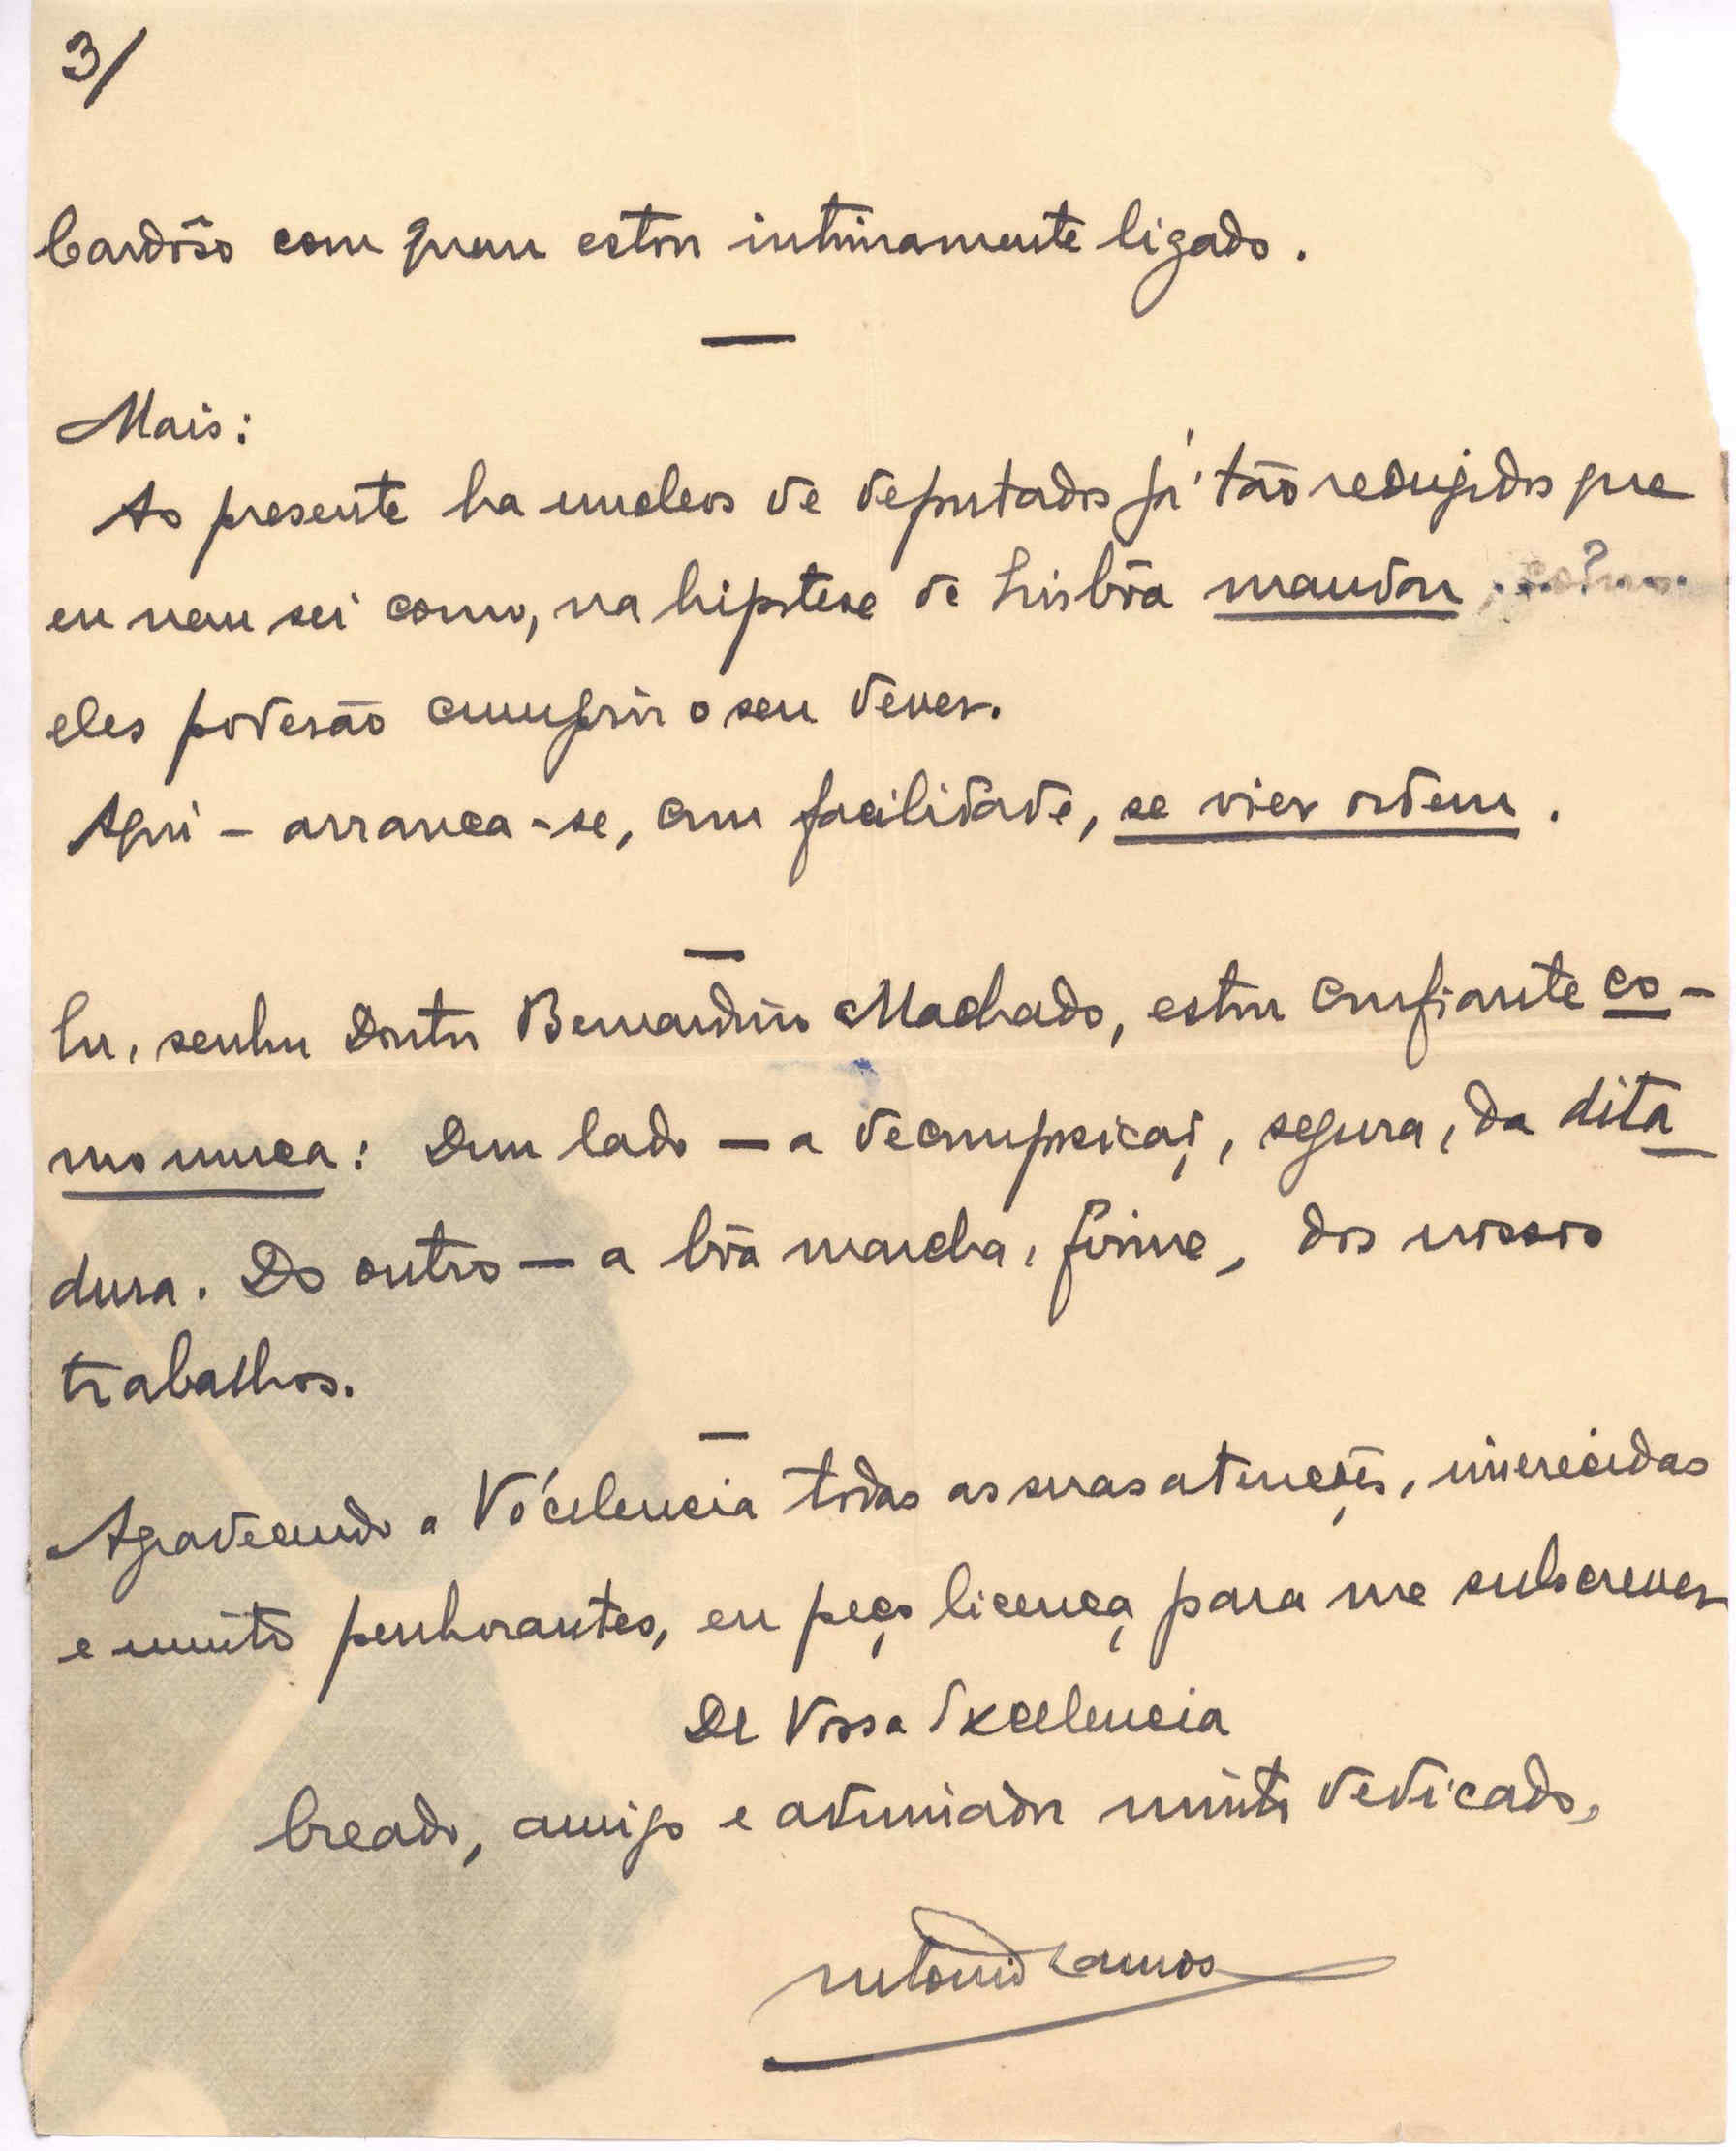 3/
Cardôso com quem estou intimamente ligado.
Mais:
Ao presente ha nucleos de deputados já tão redusidos que
eu nem sei como, na hipotese de Lisbôa mandar
eles poderão cumprir o seu dever.
Aqui - arranca-se, com facilidade, se vier ordem.
Eu, senhor Doutor Bernardino Machado, estou confiante co-
mo nunca: Dum lado — a decomposição, segura, da dita
dura. Do outro — a bôa marcha, firme, dos nossos
trabalhos.
Agradecendo a Vócelencia todas as suas atenções, imerecidas
e muito penhorantes, eu peço licença para me subscrever
De Vossa Excelencia
Creado, amigo e admirador muito dedicado,